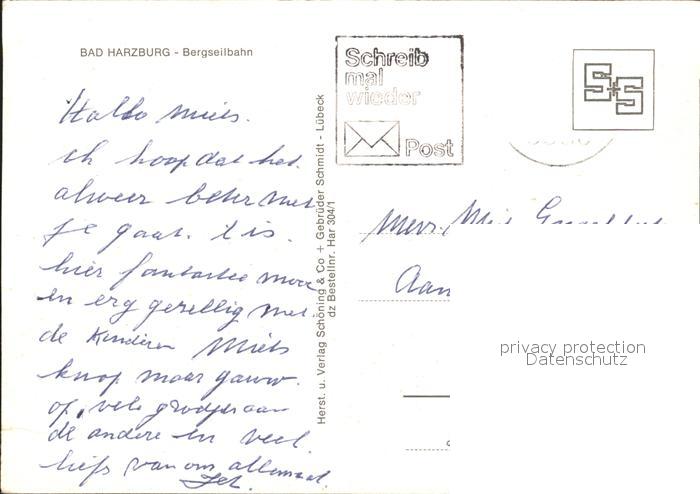 BAD HARZBURG - Bergseilbahn
Schreib
mal
wieder
Post
S+S
Hallo Miels.
ik hoop dat het
alweer beter met
je gaat. t is.
hier fantastie mooi
en erg gezellig met
de kinderen Miels
knap maar gauw.
op, vele groetjes aan
de andere en veel.
liefs van ons allemaal.
Jet.
Herst. u. Verlag Schöning & Co + Gebrüder Schmidt - Lübeck
dz Bestellnr. Har 304/1
Mevr.
Aan
privacy protection
Datenschutz